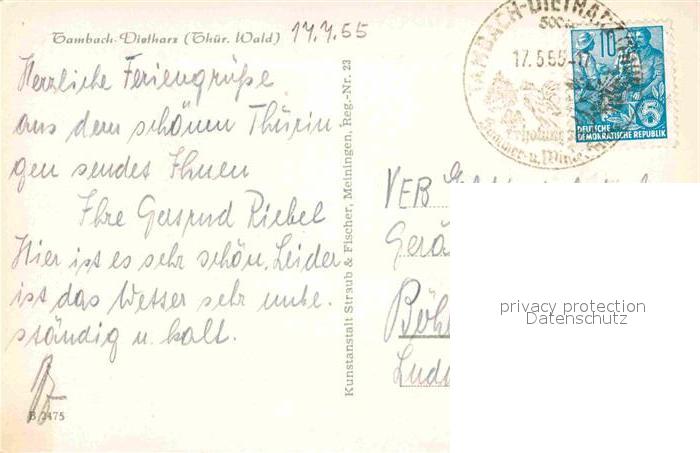 Tambach-Dietharz (Thür. Wald)
17.7.55
Herzliche Feriengrüße
aus dem schönen Thürin
gen sendet Ihnen
Ihre Gertrud Riebel
Hier ist es sehr schön. Leider
ist das Wetter sehr unbe-
ständig u. kalt.
B 2475
Kunstanstalt Straub & Fischer, Meiningen, Reg.-Nr. 23
TAMBACH-DIETHARZ
17.5.55-17
Erholung
Sommer- u. Winter
10
5
DEUTSCHE
DEMOKRATISCHE REPUBLIK
VEB
Gerä
Böhl
Ludw
privacy protection
Datenschutz